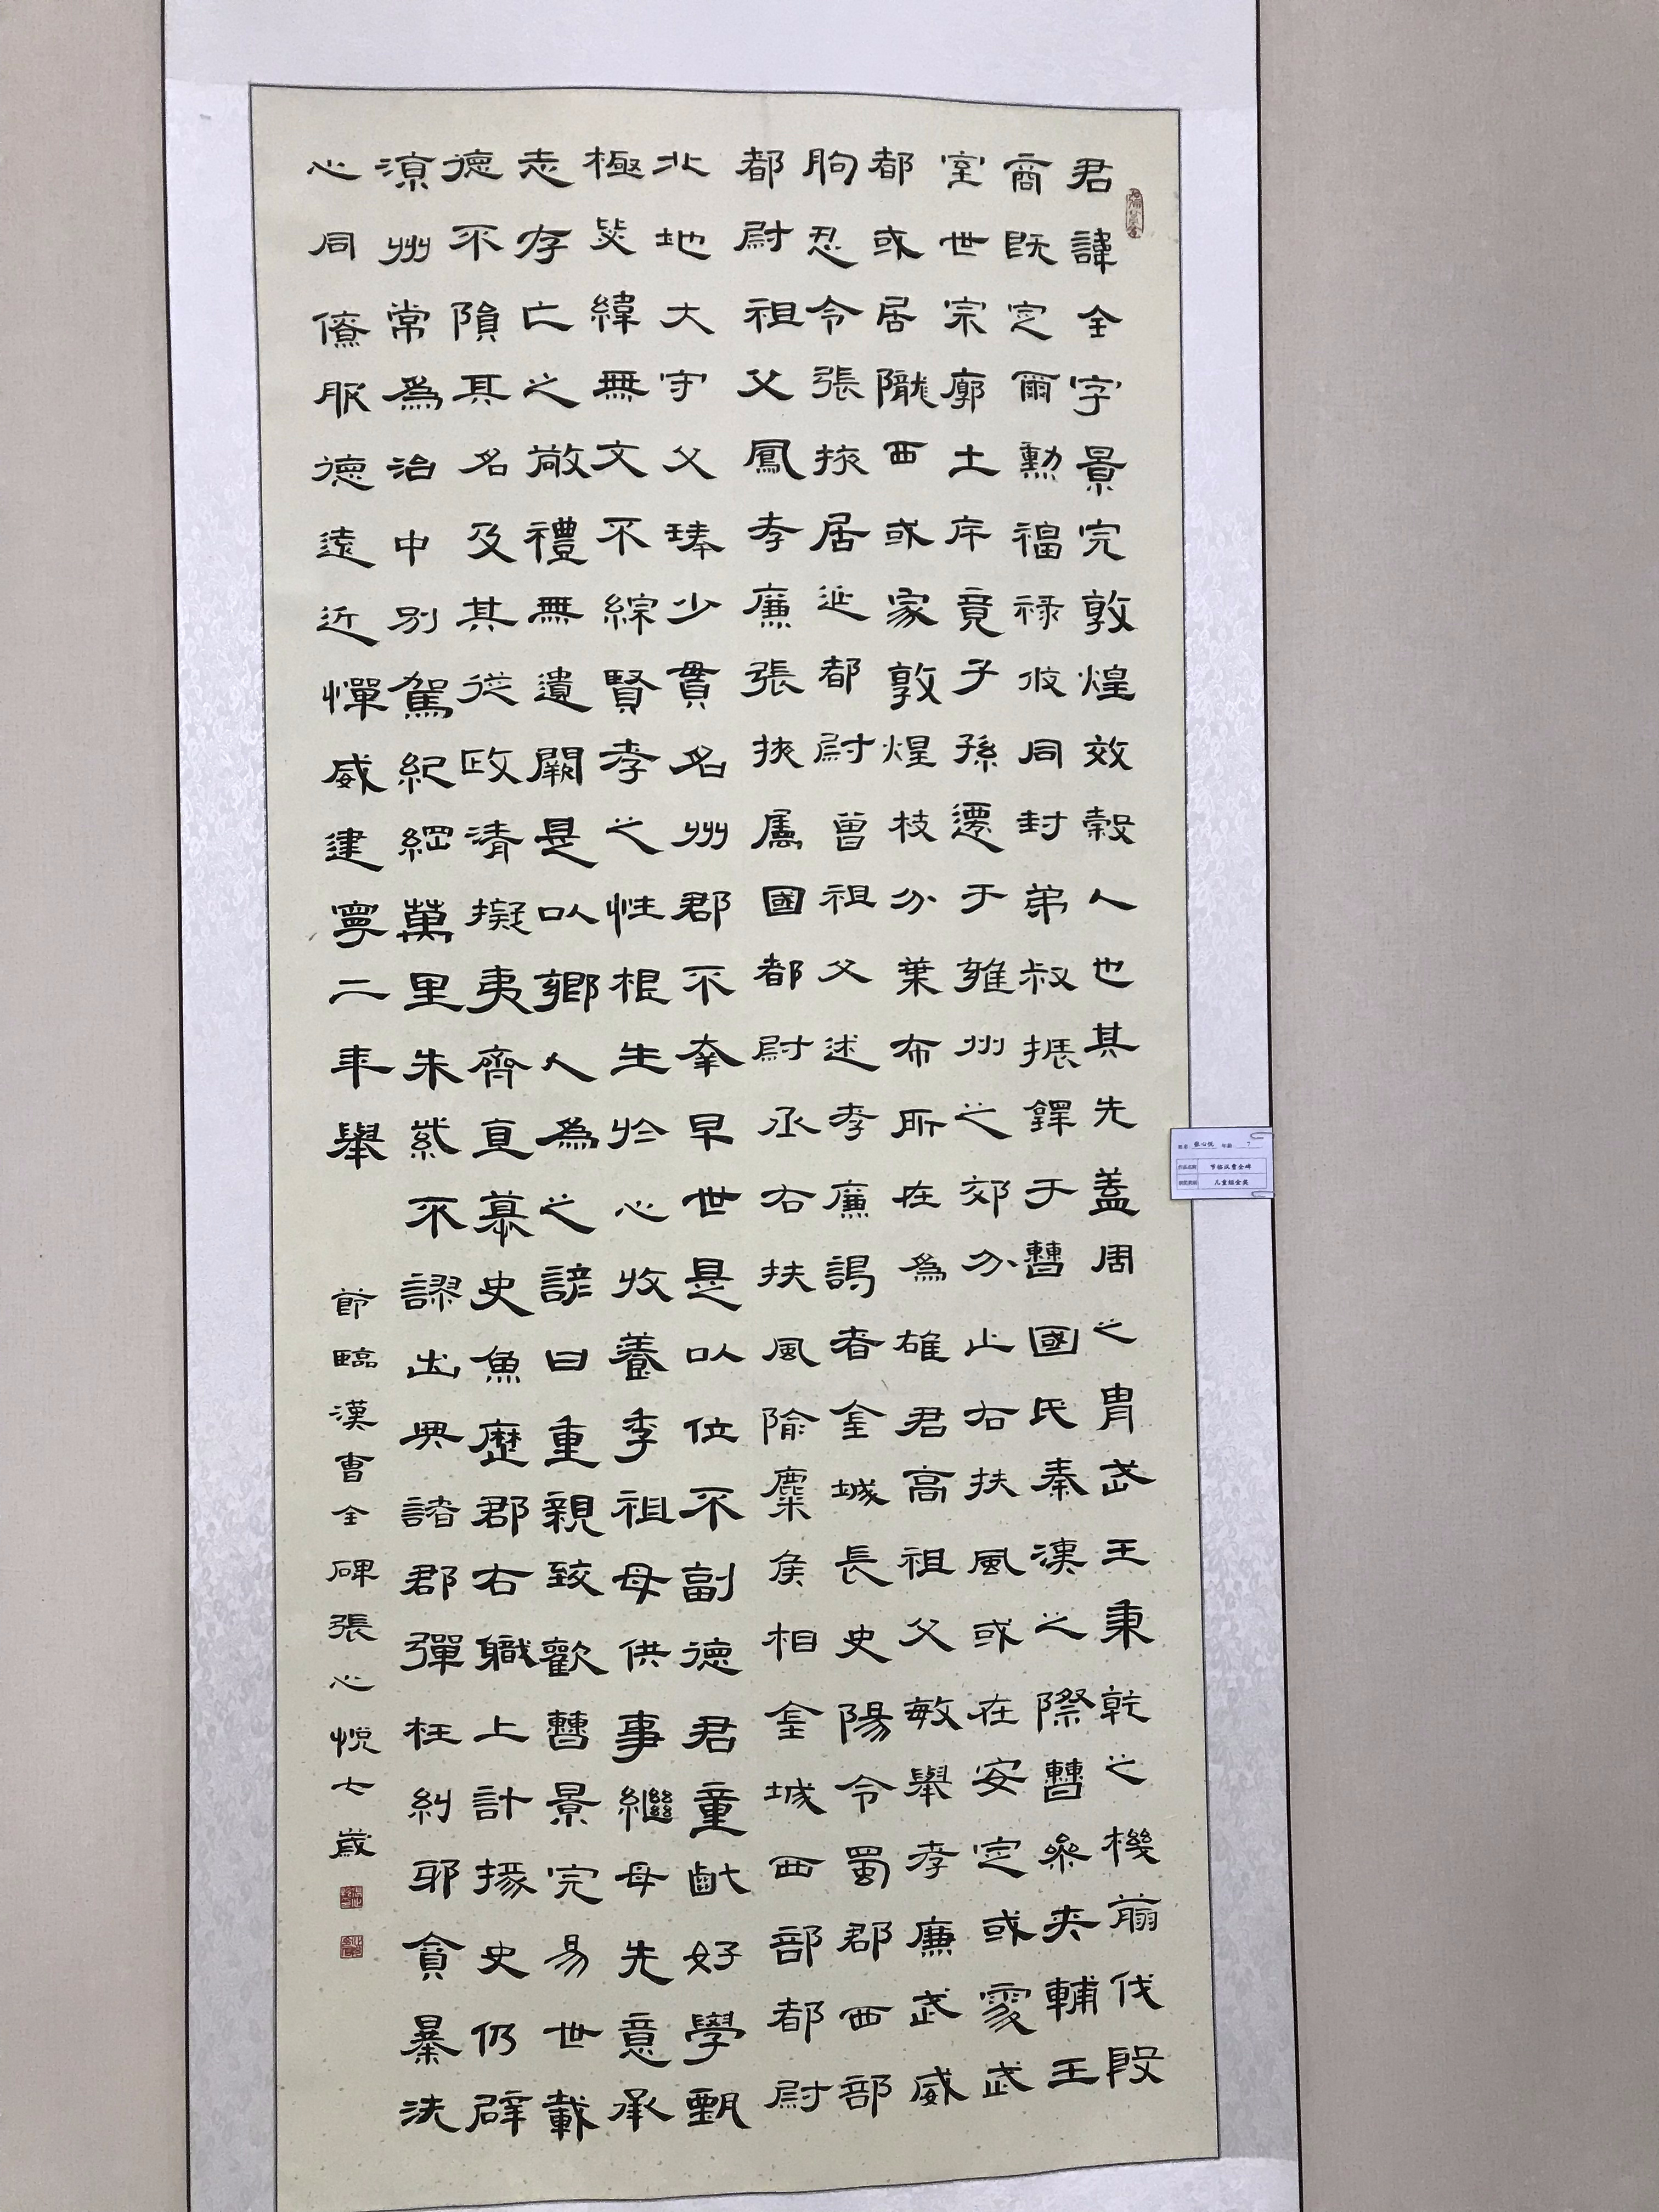 君諱全字景完敦煌效穀人也其先蓋周之冑武王秉乾之機翦伐殷
商既定爾勳福祿攸同封弟叔振鐸于曹國氏秦漢之際曹參夾輔王
室世宗廓土斥竟子孫遷于雍州之郊分止右扶風或在安定或處武
都或居隴西或家敦煌枝分葉布所在為雄君高祖父敏舉孝廉武威
朐忍令張掖居延都尉曾祖父述孝廉謁者金城長史陽令蜀郡西部
都尉祖父鳳孝廉張掖屬國都尉丞右扶風隃麋侯相金城西部都尉
北地大守父琫少貫名州郡不幸早世是以位不副德君童齔好學甄
極毖緯無文不綜賢孝之性根生於心收養季祖母供事繼母先意承
志存亡之敬禮無遺闕是以鄉人為之諺曰重親致歡曹景完易世載
德不隕其名及其從政清擬夷齊直慕史魚歷郡右職上計掾史仍辟
涼州常為治中別駕紀綱萬里朱紫不謬出典諸郡彈枉糾邪貪暴洗
心同僚服德遠近憚威建寧二年舉
節臨漢曹全碑張心悅七歲
姓名 张心悦 年龄 7
作品名称 节临汉曹全碑
儿童组金奖